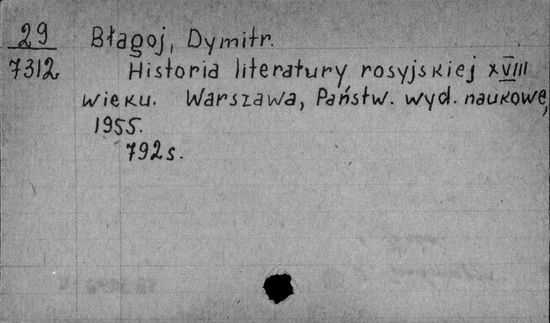 29 Błagoj, Dymitr.
7312 Historia literatury rosyjskiej XVIII
wieku. Warszawa, Państw. wyd. naukowe,
1955.
792 s.